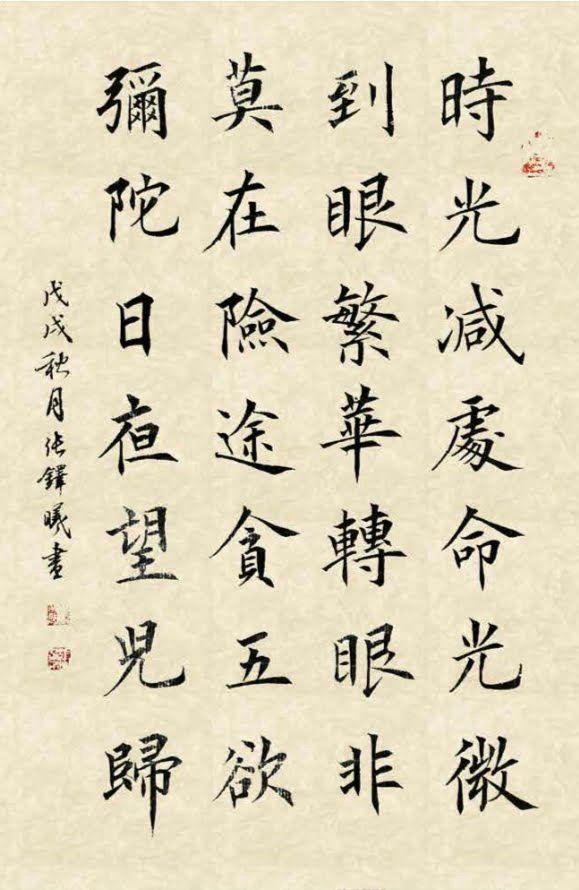 時光減處命光微
到眼繁華轉眼非
莫在險途貪五欲
彌陀日夜望兒歸
戊戌秋月張鐸曦書